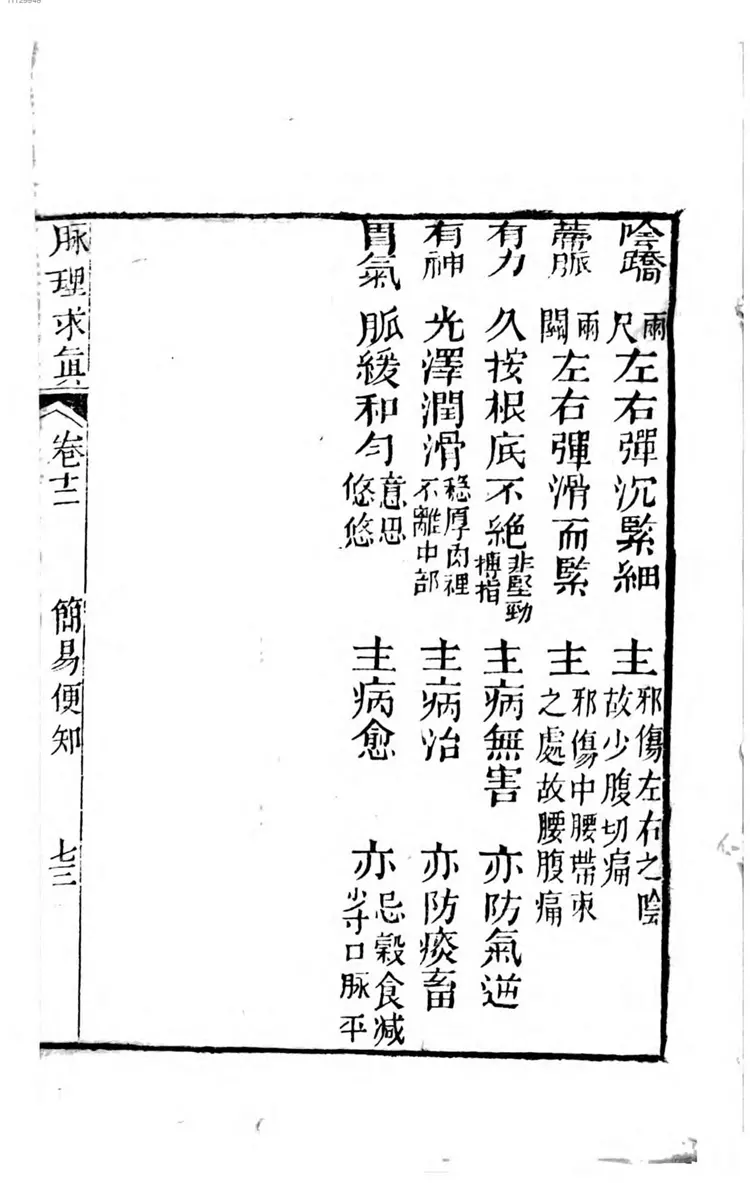 陰蹻 兩尺左右彈沉緊細 主邪傷左右之陰故少腹切痛
帶脈 兩關左右彈滑而緊 主邪傷中腰帶束之處故腰腹痛
有力 久按根底不絕非堅勁搏指 主病無害 亦防氣逆
有神 光澤潤滑穩厚肉裡不離中部 主病治 亦防痰畜
胃氣 脈緩和勻意思悠悠 主病愈 亦忌穀食减少寸口脉平
脉理求真 卷十二 簡易便知 七三